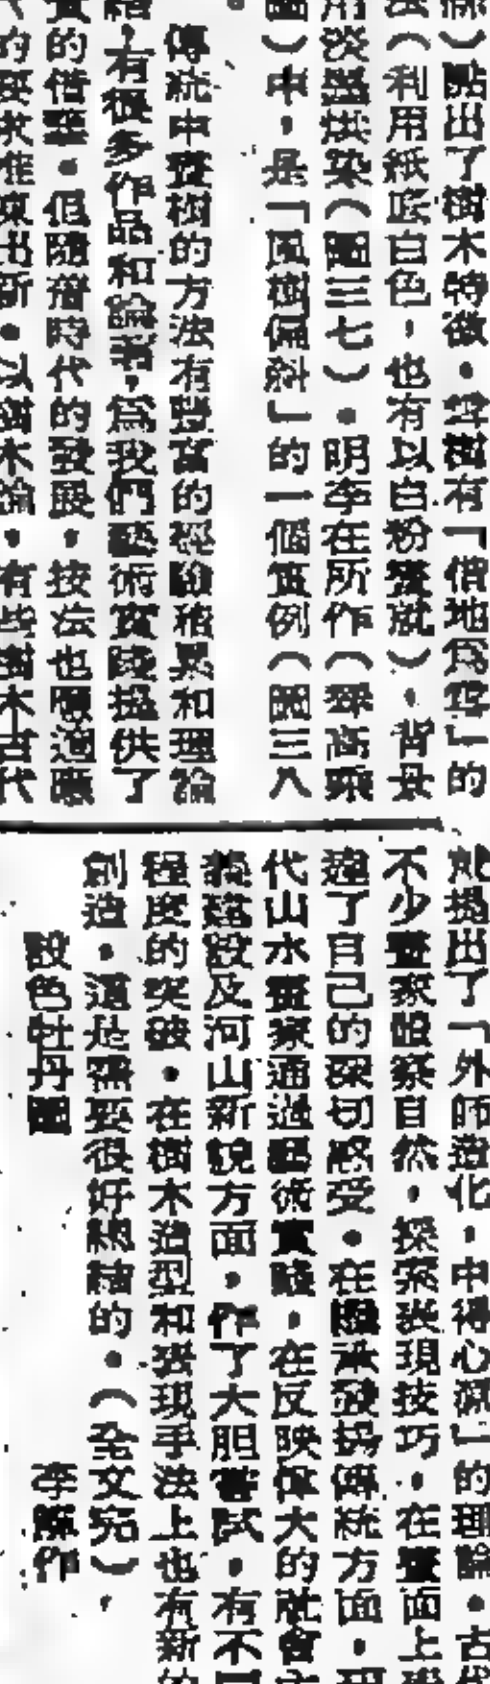 點出了樹木特徵。雪樹有「借地爲雪」的
（利用紙底白色，也有以白粉畫就），背景
用淡墨烘染（圖三七）。明李在所作（ 高乘
圖）中，是「風樹偏斜」的一個實例（圖三八
。
傳統中畫樹的方法有豐富的經驗積累和理論
結，有很多作品和論著，爲我們藝術實踐提供了
的借鑒。但隨着時代的發展，按法也應適應
的要求推陳出新。以樹木論，有些樹木古代
就提出了「外師造化，中得心源」的理論。古代
不少畫家體察自然，探索表現技巧，在畫面上
達了自己的深切感受。在繼承發揚傳統方面，現
代山水畫家通過藝術實踐，在反映偉大的社會主
義建設及河山新貌方面，作了大胆嘗試，有不同
程度的突破。在樹木造型和表現手法上也有新的
創造。這是需要很好總結的。（全文完）
設色牡丹圖
李 作